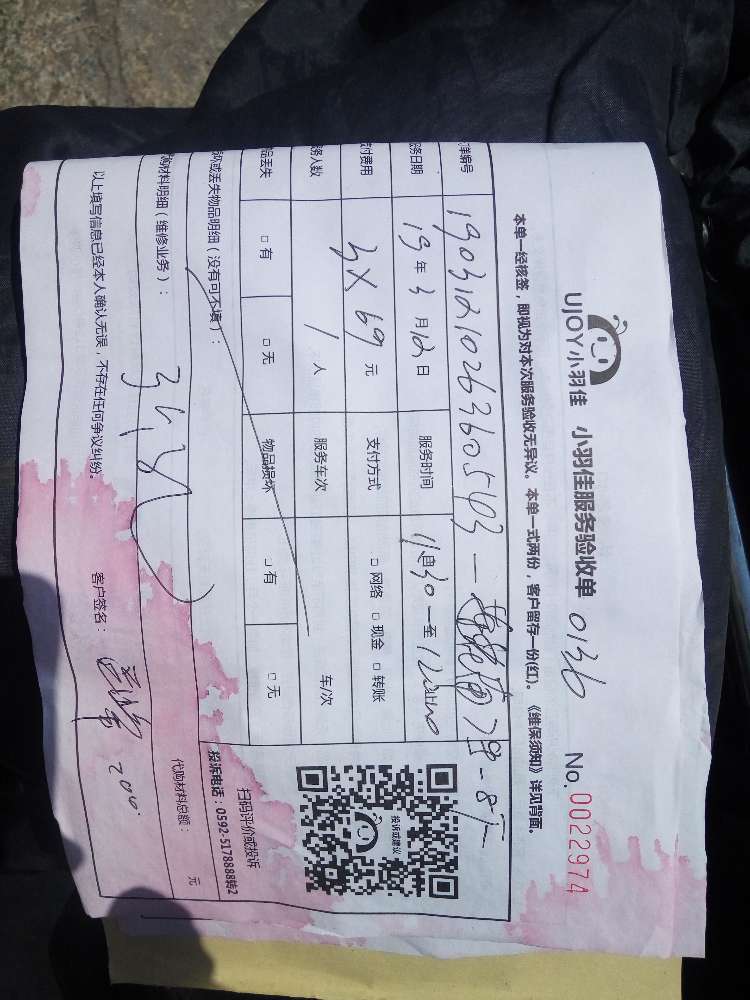 UJOY小羽佳 小羽佳服务验收单 0136 No.0022974
本单一经核签，即视为对本次服务验收无异议。本单一式两份，客户留存一份(红)。《维保须知》详见背面。
单编号 190312102636054303一
务日期 19年3月12日 服务时间 11:30一至12
付费用 3X69元 支付方式 □网络 □现金 □转账
务人数 1人 服务车次 车/次
品丢失 □有 □无 物品损坏 □有 □无
坏或丢失物品明细（没有可不填）：
投诉或建议
扫码评价或投诉
投诉电话：0592-5178888转2
购材料明细（维修业务）： 代购材料总额： 元
以上填写信息已经本人确认无误，不存在任何争议纠纷。 客户签名：